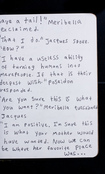 have a tail!" Meribella
exclaimed.
"That I do" Jacques swore.
"How?"
"I have a useless ability
of turning humans into
merpeople. If that is their
desire with" Poseidon
responded.
"Are you sure this is what
you want?" Meribella
Jacques
"I am positive. I'm sure this
is what your mother would
have wanted. Now we can
be where her favorite place
was..."